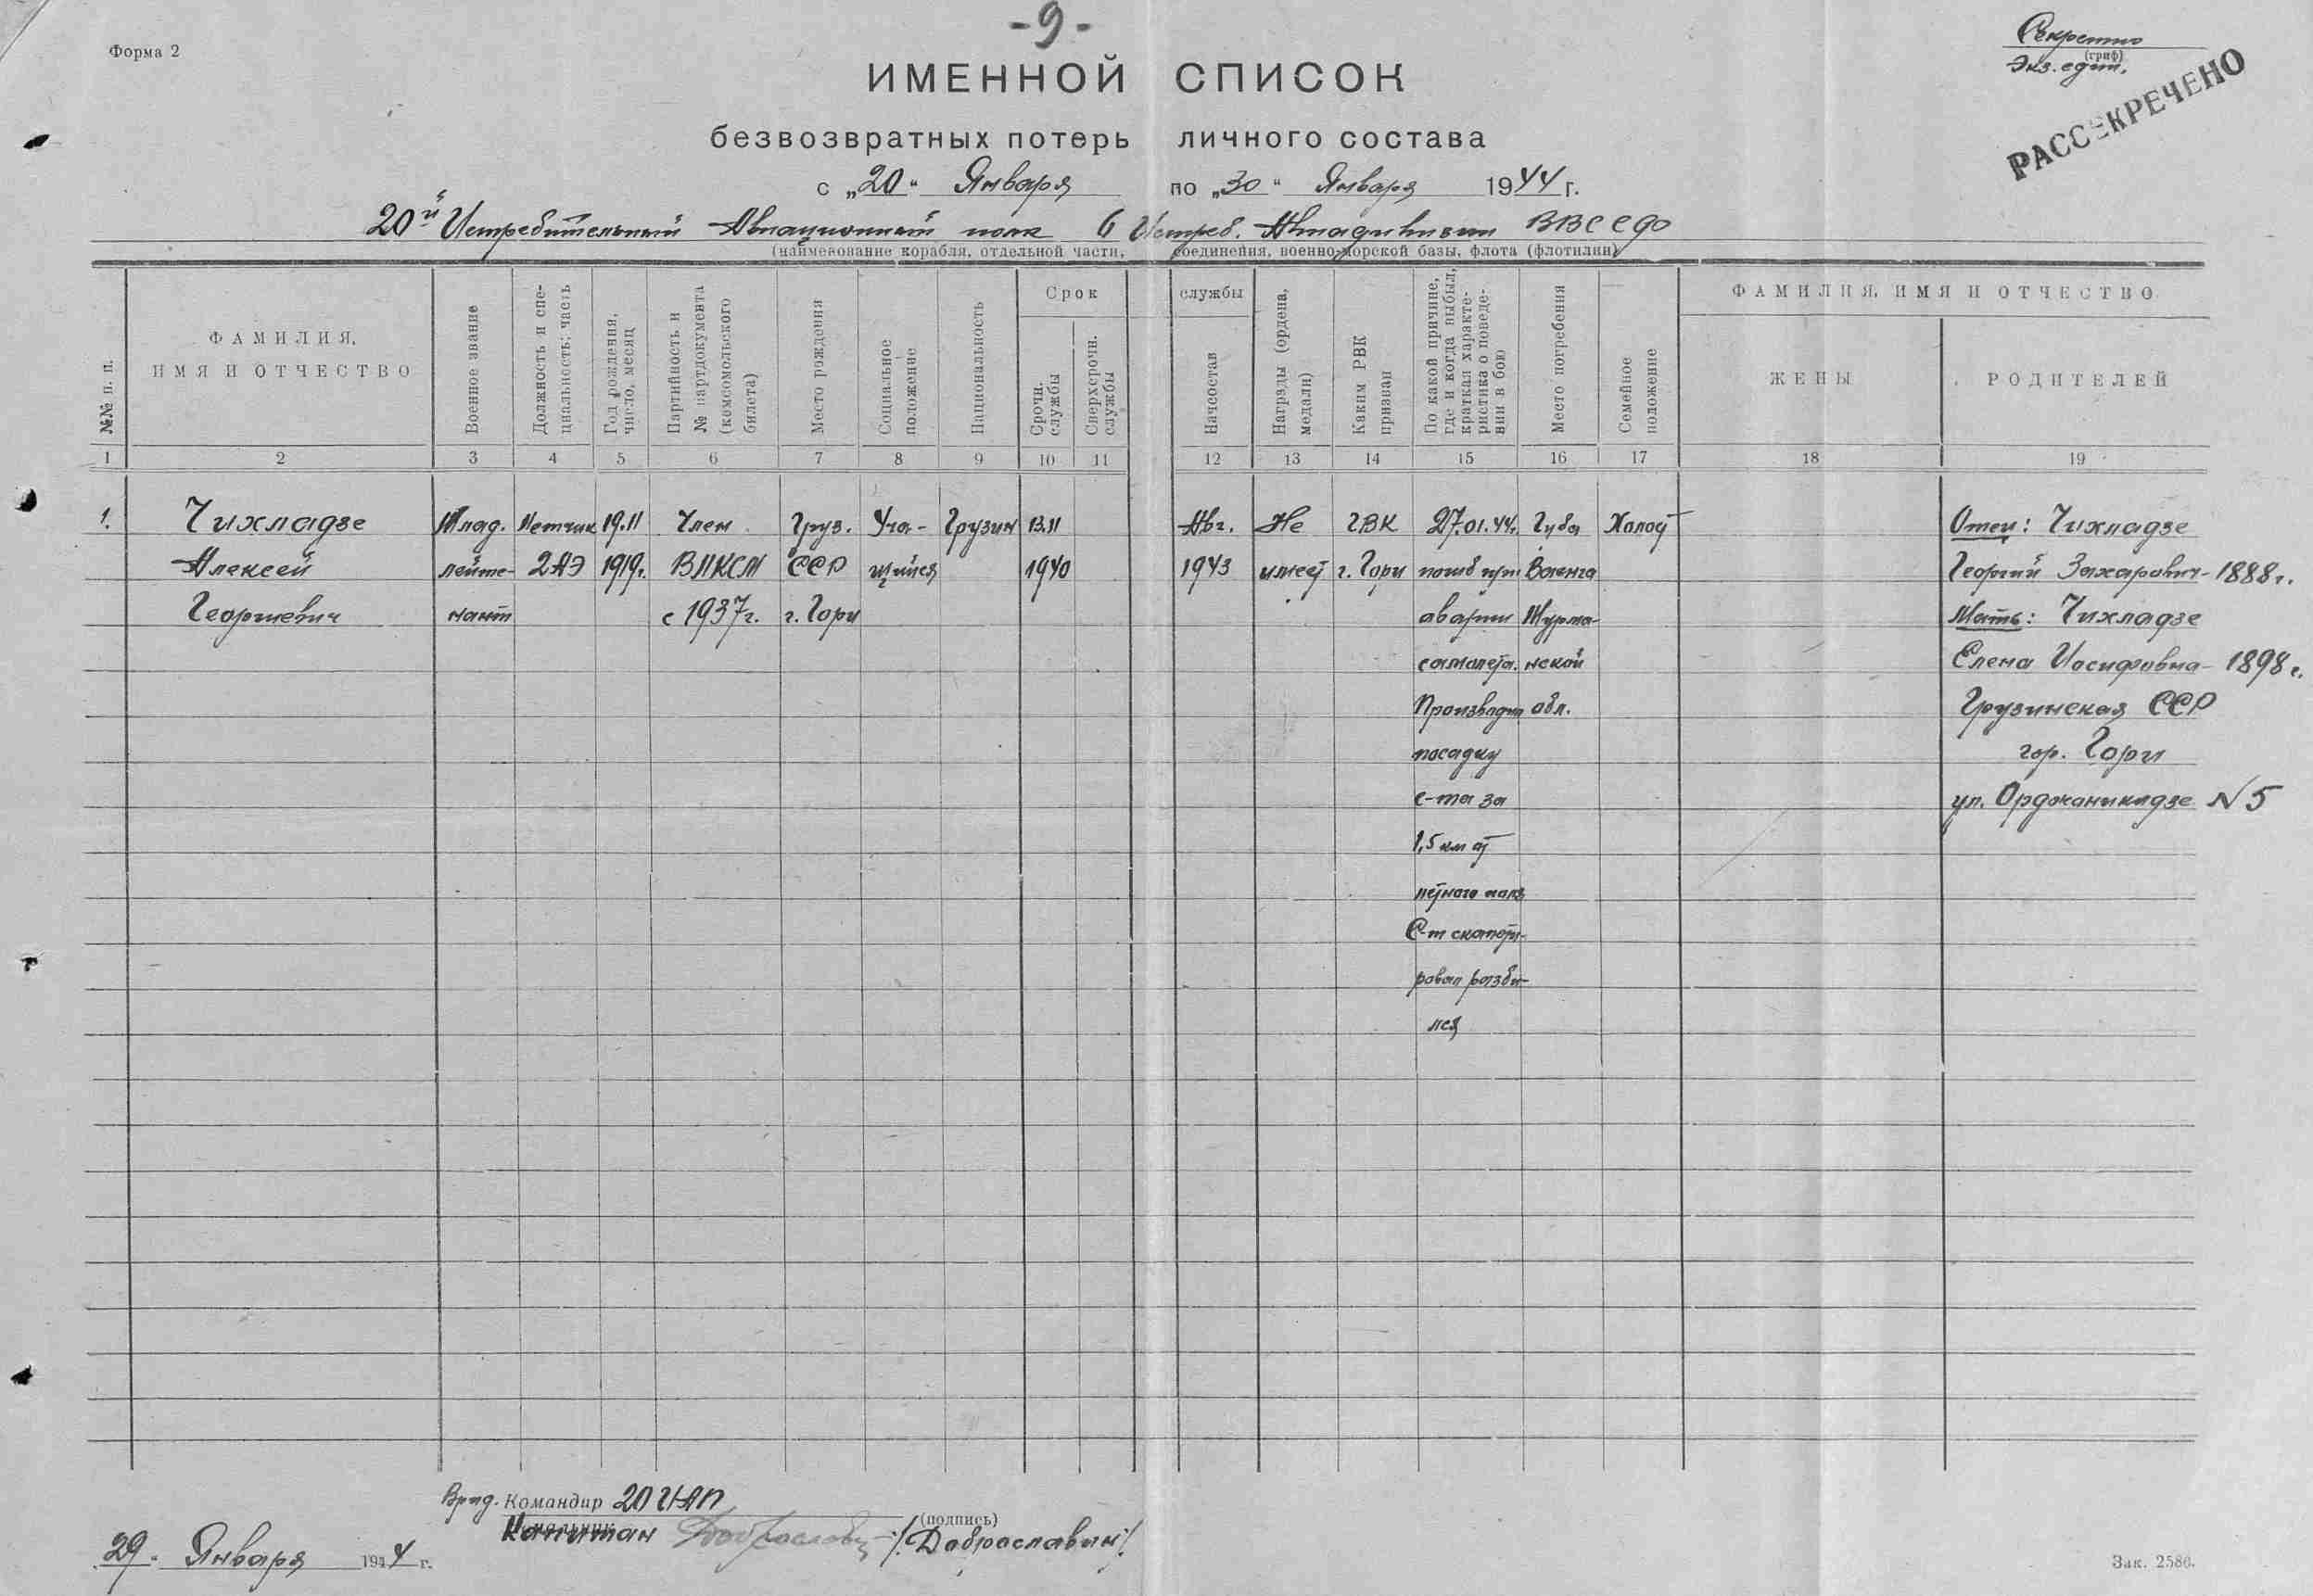 - 9 -
Форма 2
Секретно
(гриф)
Экз. един.
РАССЕКРЕЧЕНО
ИМЕННОЙ СПИСОК
безвозвратных потерь личного состава
с „20“ Января по „30“ Января 1944 г.
20й Истребительный Авиационный полк 6 Истреб. Авиадивизии ВВС СФ
(наименование корабля, отдельной части, соединения, военно-морской базы, флота (флотилии)
№№ п. п.
ФАМИЛИЯ,
ИМЯ И ОТЧЕСТВО
Военное звание
Должность и спе-
циальность; часть
Год рождения,
число, месяц
Партийность и
№ партдокумента
(комсомольского
билета)
Место рождения
Социальное
положение
Национальность
Срок службы
Срочн.
службы
Сверхсрочн.
службы
Начсостав
Награды (ордена,
медали)
Каким РВК
призван
По какой причине,
где и когда выбыл,
краткая характе-
ристика о поведе-
нии в бою
Место погребения
Семейное
положение
ФАМИЛИЯ, ИМЯ И ОТЧЕСТВО
ЖЕНЫ
РОДИТЕЛЕЙ
1 2 3 4 5 6 7 8 9 10 11 12 13 14 15 16 17 18 19
1. Чихладзе Млад. Летчик 19.11 Член Груз. Уча- Грузин 13.11 Авг. Не ГВК 27.01.44г. Губа Холост Отец: Чихладзе
Алексей лейте- 2АЭ 1919г. ВЛКСМ ССР щийся 1940 1943 имеет г. Гори погиб при Ваенга Георгий Захарович - 1888 г.
Георгиевич нант с 1937г. г. Гори аварии Мурма- Мать: Чихладзе
самолета. нской Елена Иосифовна - 1898 г.
Производил обл. Грузинская ССР
посадку гор. Гори
с-та за ул. Орджоникидзе N 5
1,5 км от
летного поля
С-т скапоти-
ровал разби-
лся
Врид. Командир 20 ИАП
Капитан (подпись) /Доброславин/
29. Января 1944 г.
Зак. 2586.